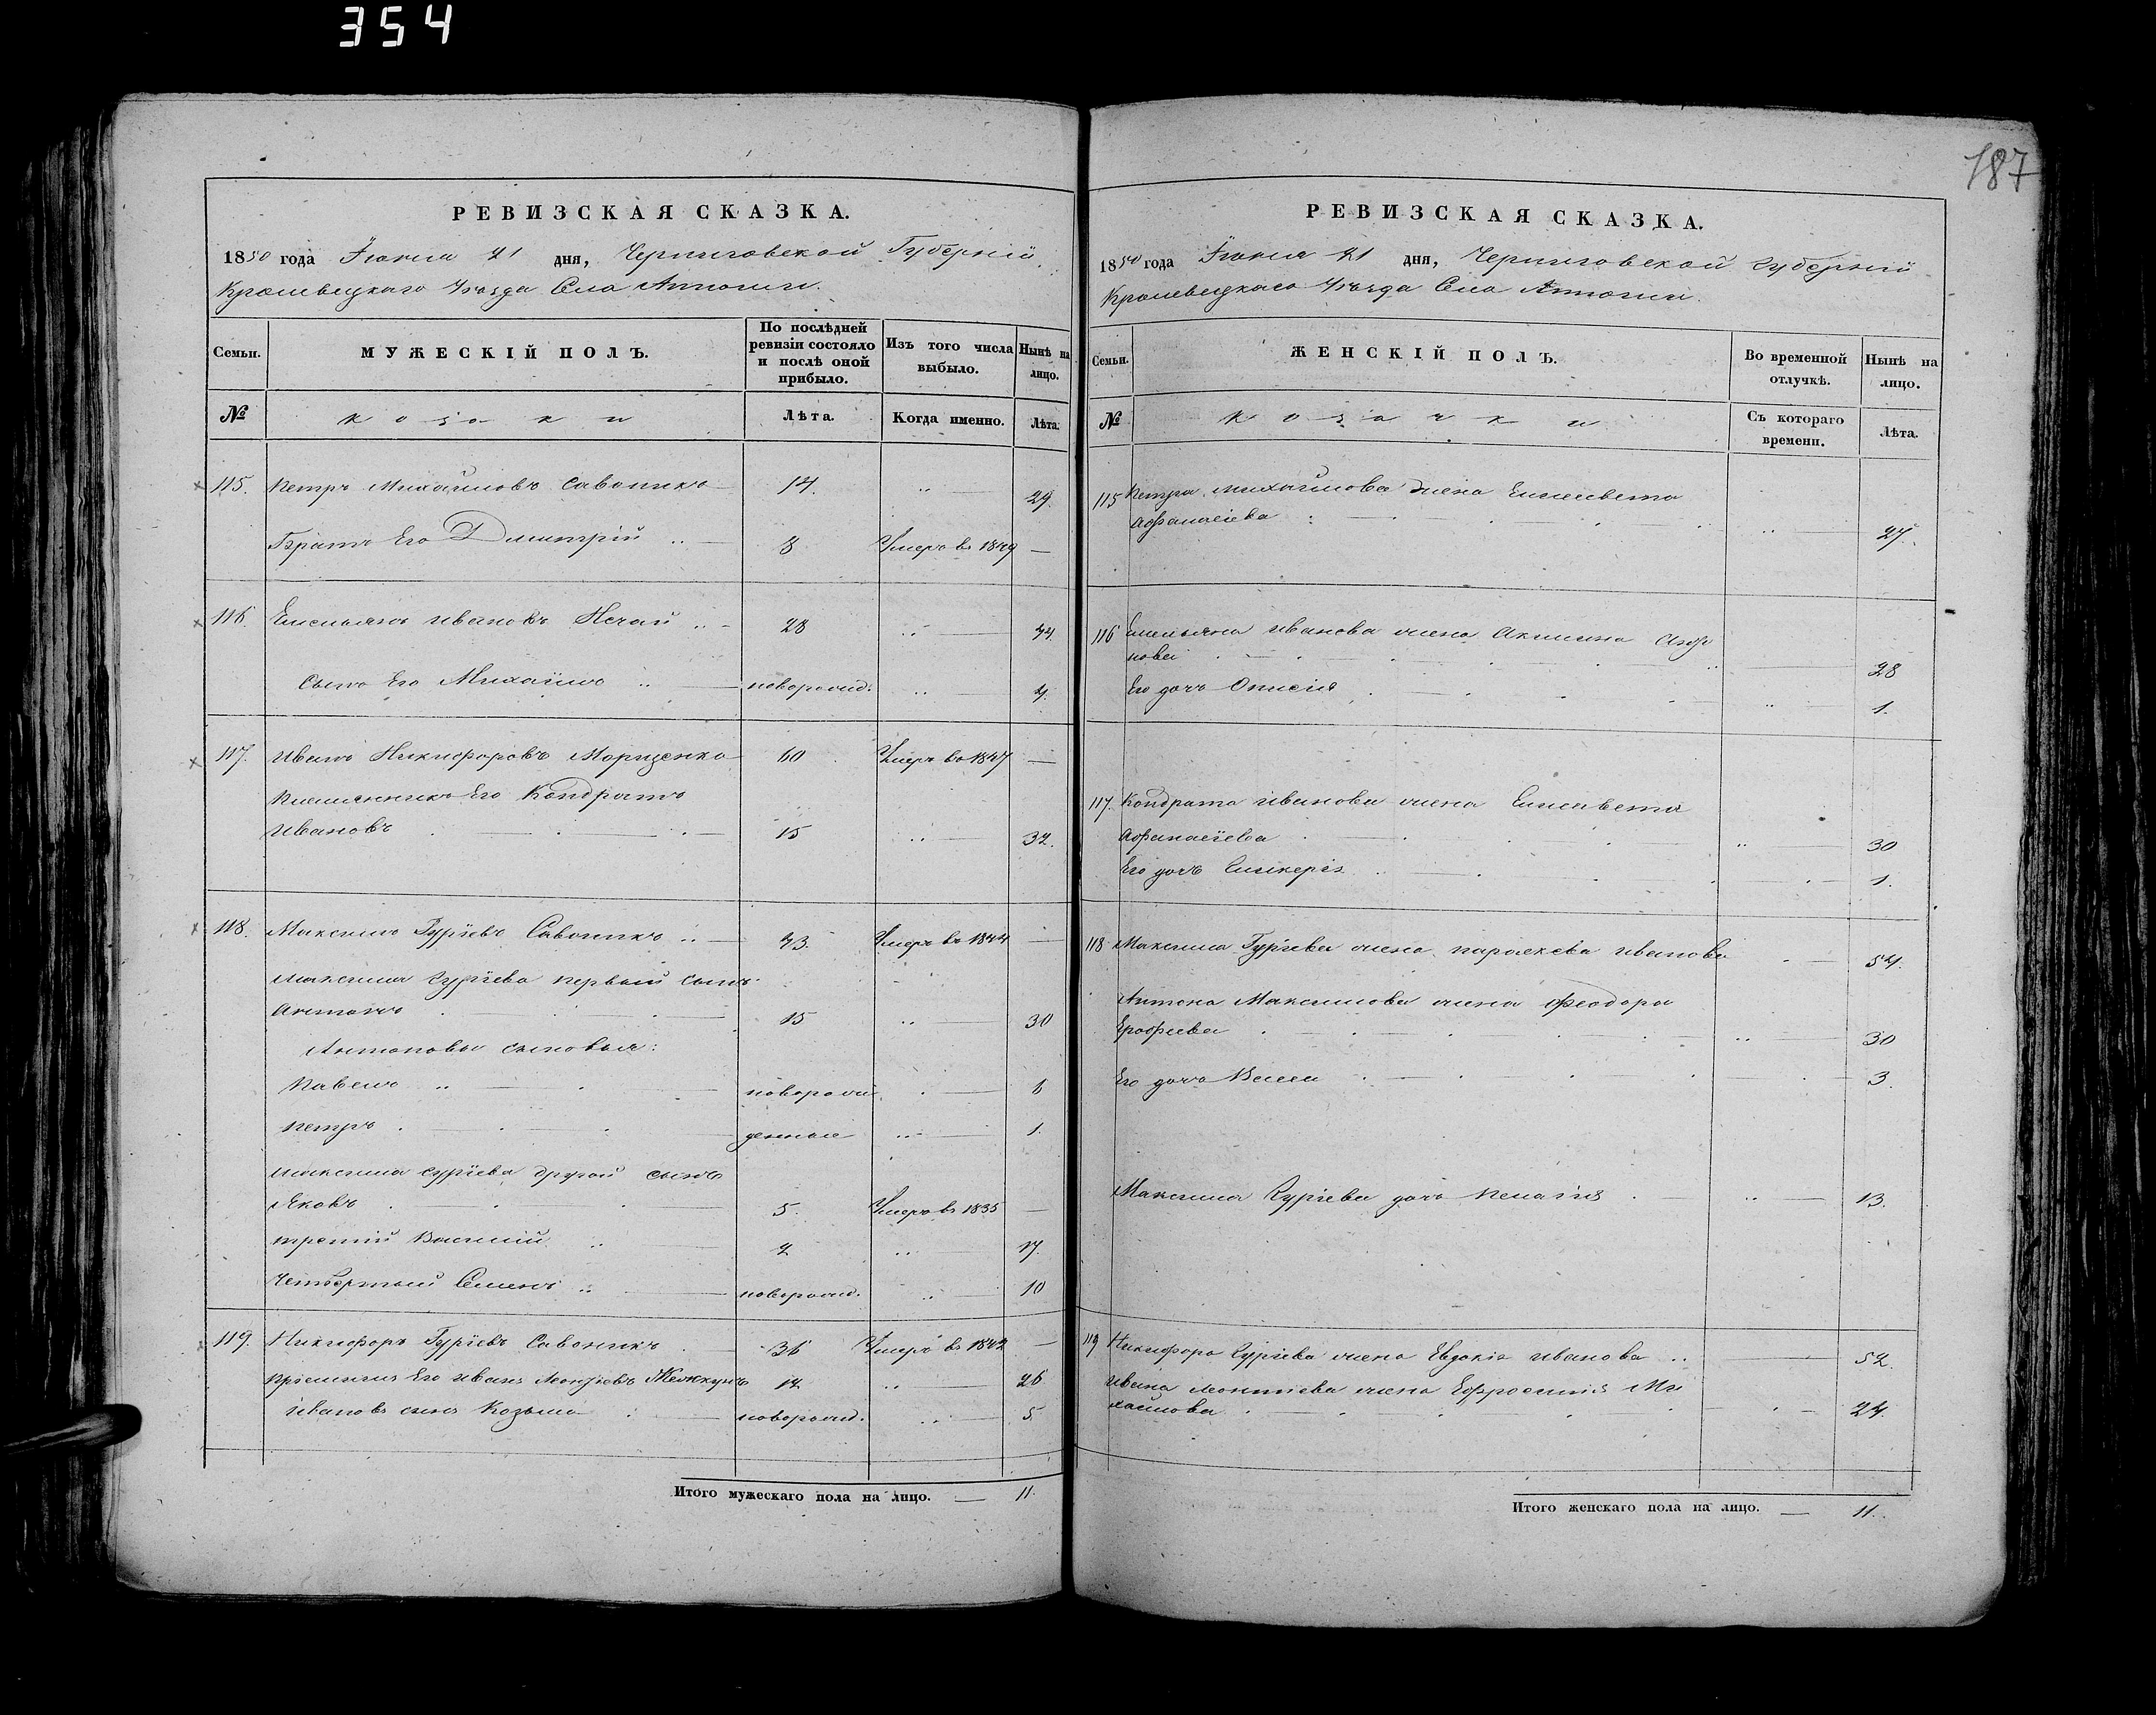 354
187
РЕВИЗСКАЯ СКАЗКА.
1850 года Іюня 21 дня, Черниговской Губерніи
Кролевецкаго Уѣзда Села
Семьи.
МУЖЕСКІЙ ПОЛЪ.
По послѣдней ревизіи состояло и послѣ оной прибыло.
Изъ того числа выбыло.
Нынѣ на лицо.
№
козаки
Лѣта.
Когда именно.
Лѣта.
115. Петръ Михайловъ Савоникъ 14. 29.
Братъ Его Димитрій 8 Умеръ в 1849 —
116. Емельянъ Ивановъ Нечай 28 44.
Сынъ Его Михаилъ новорожд. 4.
117. Иванъ Никифоровъ 60 Умеръ во 1847 —
Племянникъ Его Кондратъ
Ивановъ 15 32.
118. Максимъ Гурієвъ Савоникъ 43. Умеръ въ 1844 —
Максима Гурієва первый сынъ
Антонъ 15 30
Антоновы сыновья:
Павелъ новорож 8
Петръ денные 1.
Максима Гурієва другой сынъ
Яковъ 5. Умеръ в 1835 —
третій Василій 2 17.
Четвертый Семенъ новорожд. 10
119. Никифоръ Гурієвъ Савоникъ 36 Умеръ в 1842 —
Пріемышъ Его Иванъ Леонтіевъ 12 26
Ивановъ сынъ Козьма новорожд. 5.
Итого мужескаго пола на лицо. — 11.
РЕВИЗСКАЯ СКАЗКА.
1850 года Іюня 21 дня, Черниговской Губерніи
Кролевецкаго Уѣзда Села
Семьи.
ЖЕНСКІЙ ПОЛЪ.
Во временной отлучкѣ.
Нынѣ на лицо.
№
козачки
Съ котораго времени.
Лѣта.
115 Петра Михайлова жена Елисавета
Афанасіева 27.
116 Емельяна Иванова жена Акилина
нова 28
Его дочь 1.
117. Кондрата Иванова жена Елисавета
Афанасіева 30
Его дочь Гликерія 1.
118 Максима Гурієва жена Параскева Иванова 54.
Антона Максимова жена Феодора
Ерофіева 30
Его дочь Васса 3.
Максима Гурієва дочь Пелагія 13.
119 Никифора Гурієва жена Евдокія Иванова 52.
Ивана Леонтіева жена Ефросинія Ми
хайлова 24.
Итого женскаго пола на лицо. — 11.